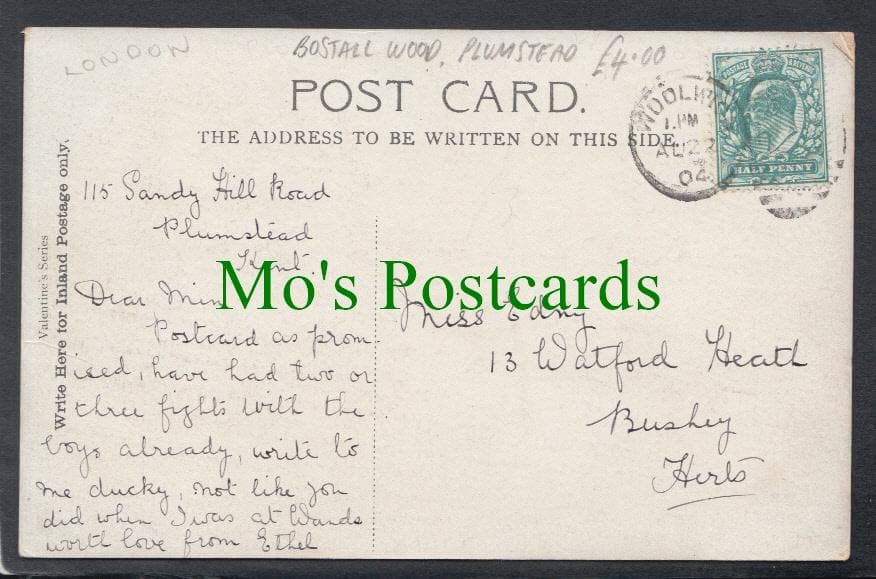 LONDON
BOSTALL WOOD, PLUMSTEAD £4.00
POST CARD.
THE ADDRESS TO BE WRITTEN ON THIS SIDE
WOOLWI
1. PM
AU 22
04
POSTAGE
HALF PENNY
Valentine's Series
Write Here for Inland Postage only.
115 Sandy Hill Road
Plumstead
Kent.
Dear Min
Postcard as prom
ised, have had two or
three fights with the
boys already, write to
me ducky, not like you
did when I was at Wands
worth love from Ethel
Mo's Postcards
Miss Edny
13 Watford Heath
Bushey
Herts